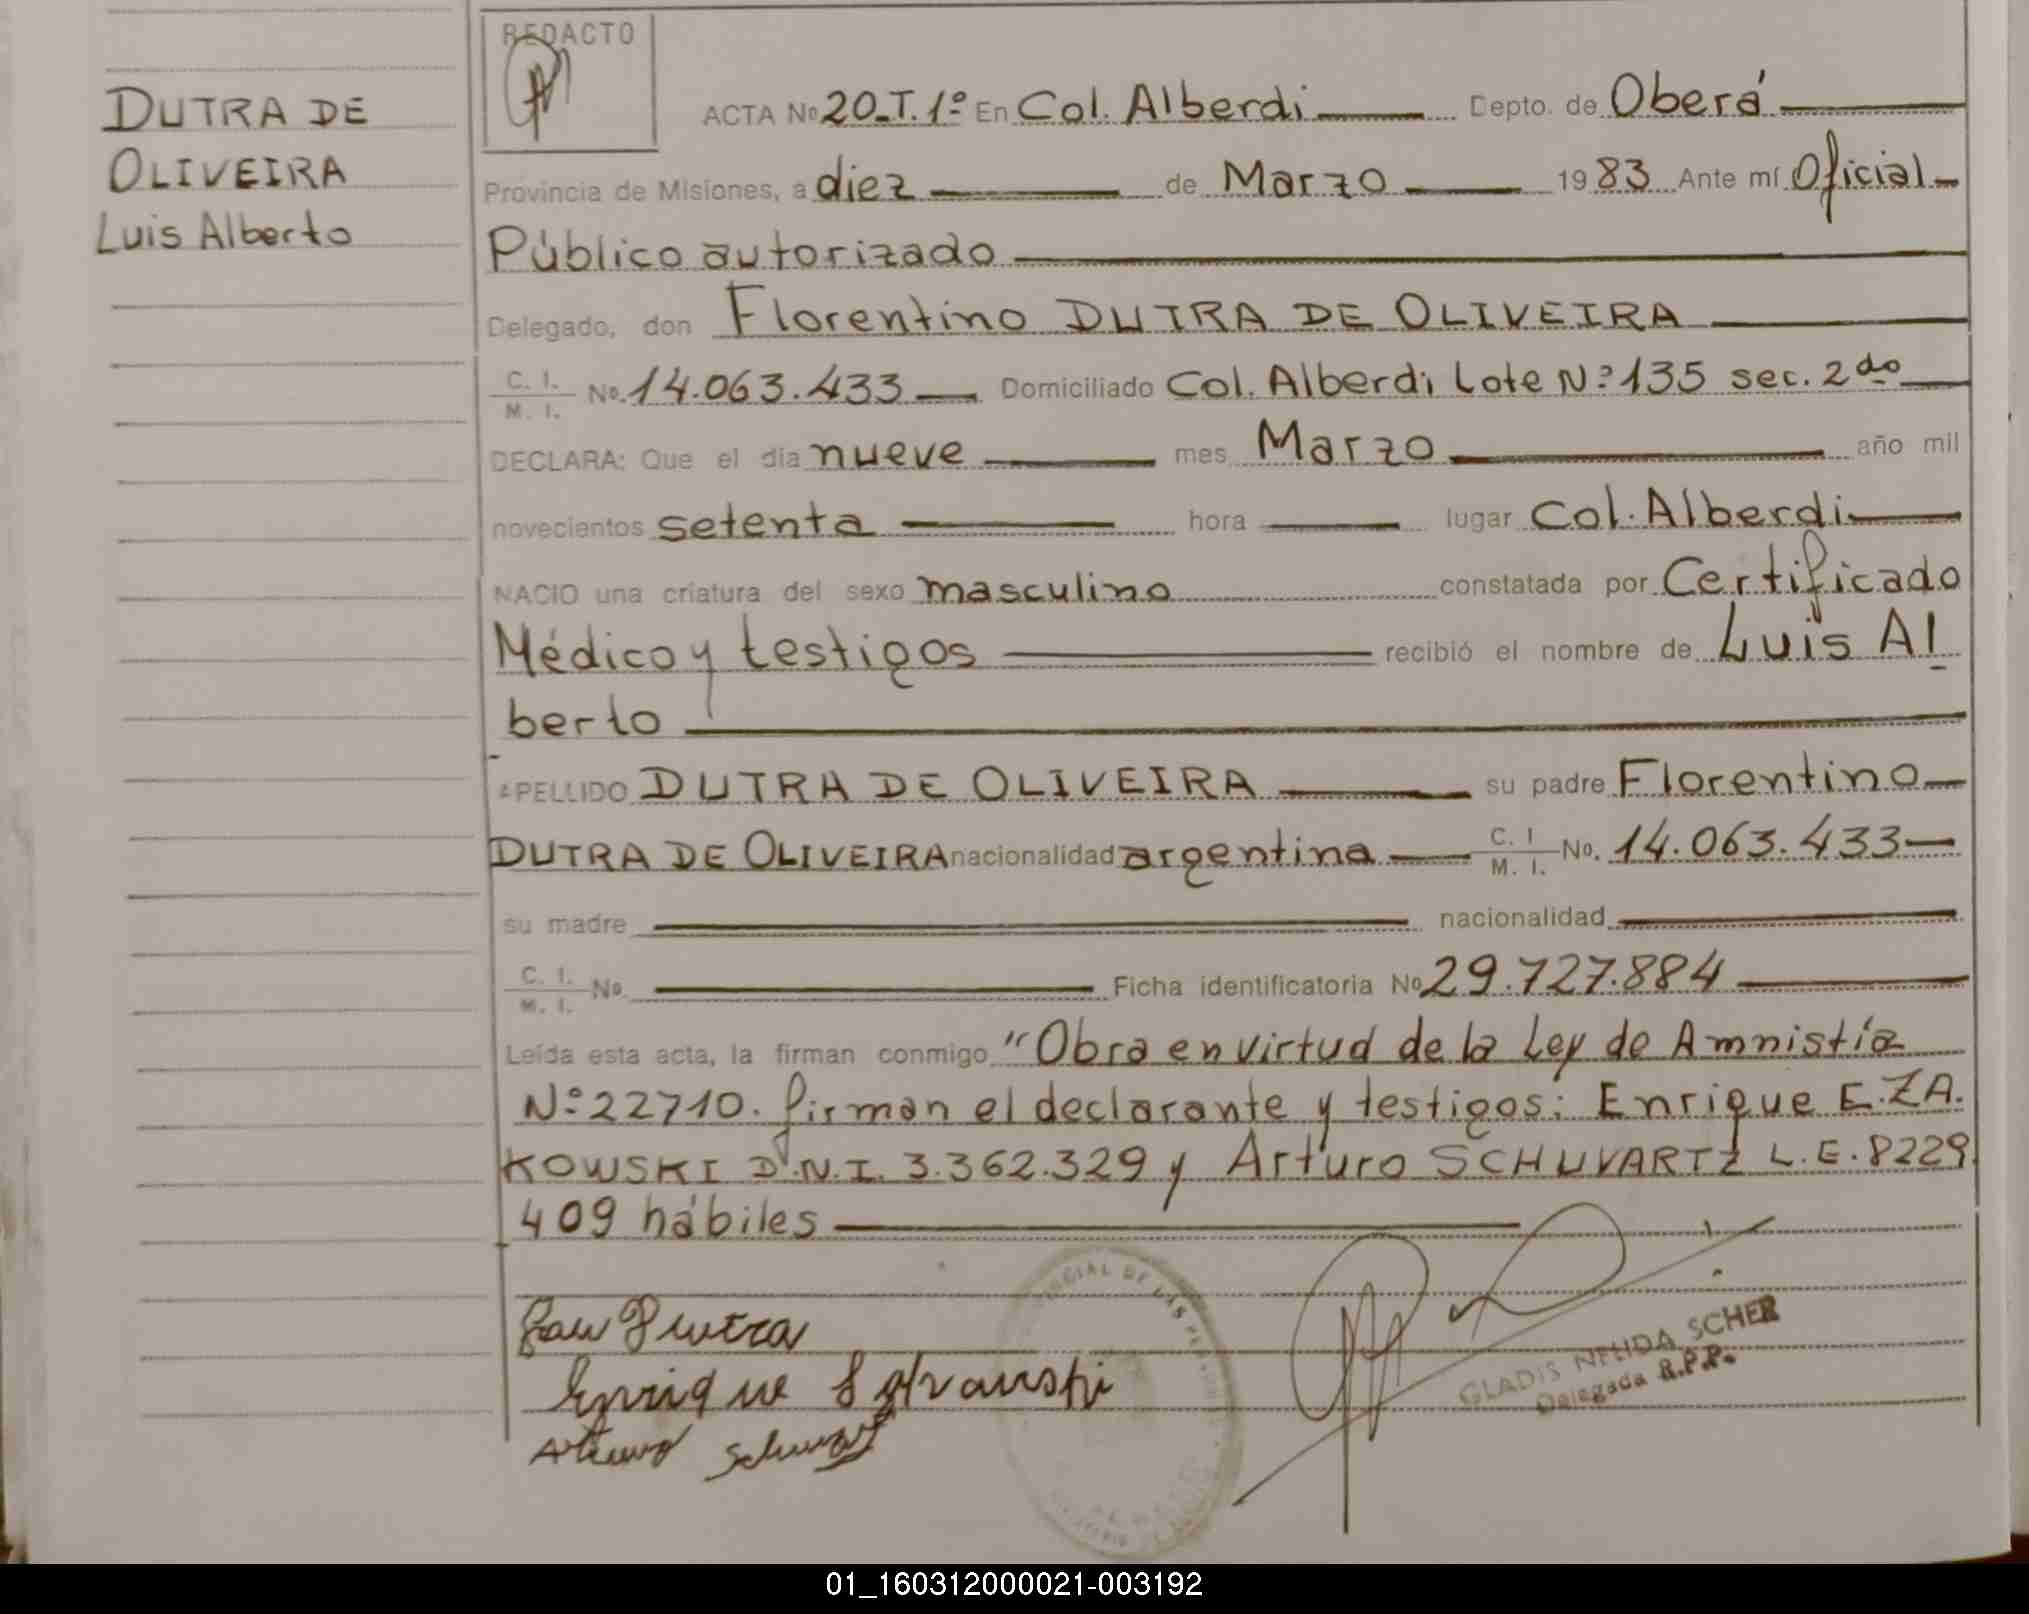 DUTRA DE
OLIVEIRA
Luis Alberto
REDACTO
ACTA No 20_T.1º En Col. Alberdi Depto. de Oberá
Provincia de Misiones, a diez de Marzo 1983 Ante mí Oficial
Público autorizado
Delegado, don Florentino DUTRA DE OLIVEIRA
C. I. M. I. No. 14.063.433 Domiciliado Col. Alberdi Lote Nº 135 sec. 2do
DECLARA: Que el día nueve mes Marzo año mil
novecientos setenta hora lugar Col. Alberdi
NACIO una criatura del sexo masculino constatada por Certificado
Médico y testigos recibió el nombre de Luis Al
berto
APELLIDO DUTRA DE OLIVEIRA su padre Florentino
DUTRA DE OLIVEIRA nacionalidad argentina C. I M. I. No. 14.063.433
su madre nacionalidad
C. I. M. I. No. Ficha identificatoria No 29.727.884
Leída esta acta, la firman conmigo "Obra en virtud de la Ley de Amnistía
Nº 22710. firman el declarante y testigos: Enrique E. ZA.
KOWSKI D.N.I. 3.362.329 y Arturo SCHUVARTZ L.E. 8229.
409 hábiles
Dutra
Enrique
GLADIS NELIDA SCHER
Delegada R.P.P.
01_160312000021-003192